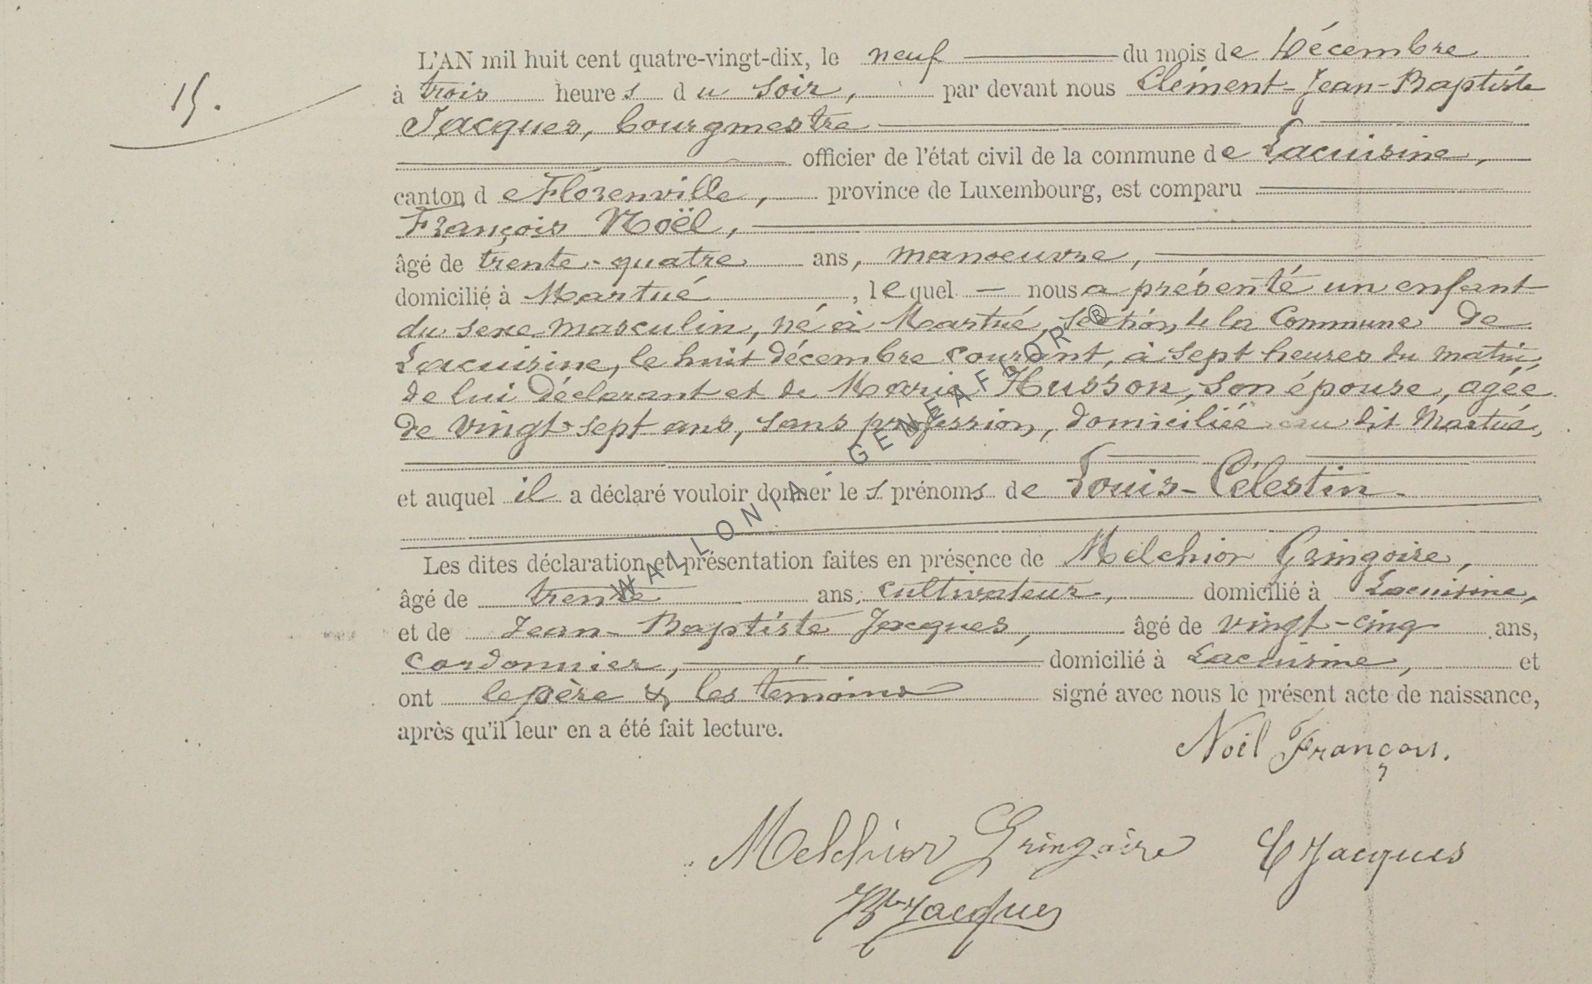 15.
L'AN mil huit cent quatre-vingt-dix, le neuf du mois de Décembre
à trois heures du soir, par devant nous Clément-Jean-Baptiste
Jacques, bourgmestre
officier de l'état civil de la commune de Lacuisine,
canton de Florenville, province de Luxembourg, est comparu
François Noël,
âgé de trente-quatre ans, manoeuvre,
domicilié à Martué, lequel — nous a présenté un enfant
du sexe masculin, né à Martué, section de la Commune de
Lacuisine, le huit décembre courant, à sept heures du matin,
de lui déclarant et de Marie Husson, son épouse, agée
de vingt-sept ans, sans profession, domiciliée au dit Martué,
et auquel il a déclaré vouloir donner les prénoms de Louis-Célestin.
Les dites déclaration et présentation faites en présence de Melchior Gringoire,
âgé de trente ans, cultivateur, domicilié à Lacuisine,
et de Jean-Baptiste Jacques, âgé de vingt-cinq ans,
cordonnier, domicilié à Lacuisine, et
ont le père & les temoins signé avec nous le présent acte de naissance,
après qu'il leur en a été fait lecture.
Noël François.
Melchior Gringoire C Jacques
JBte Jacques
WALLONIA GENEAFLOR ®